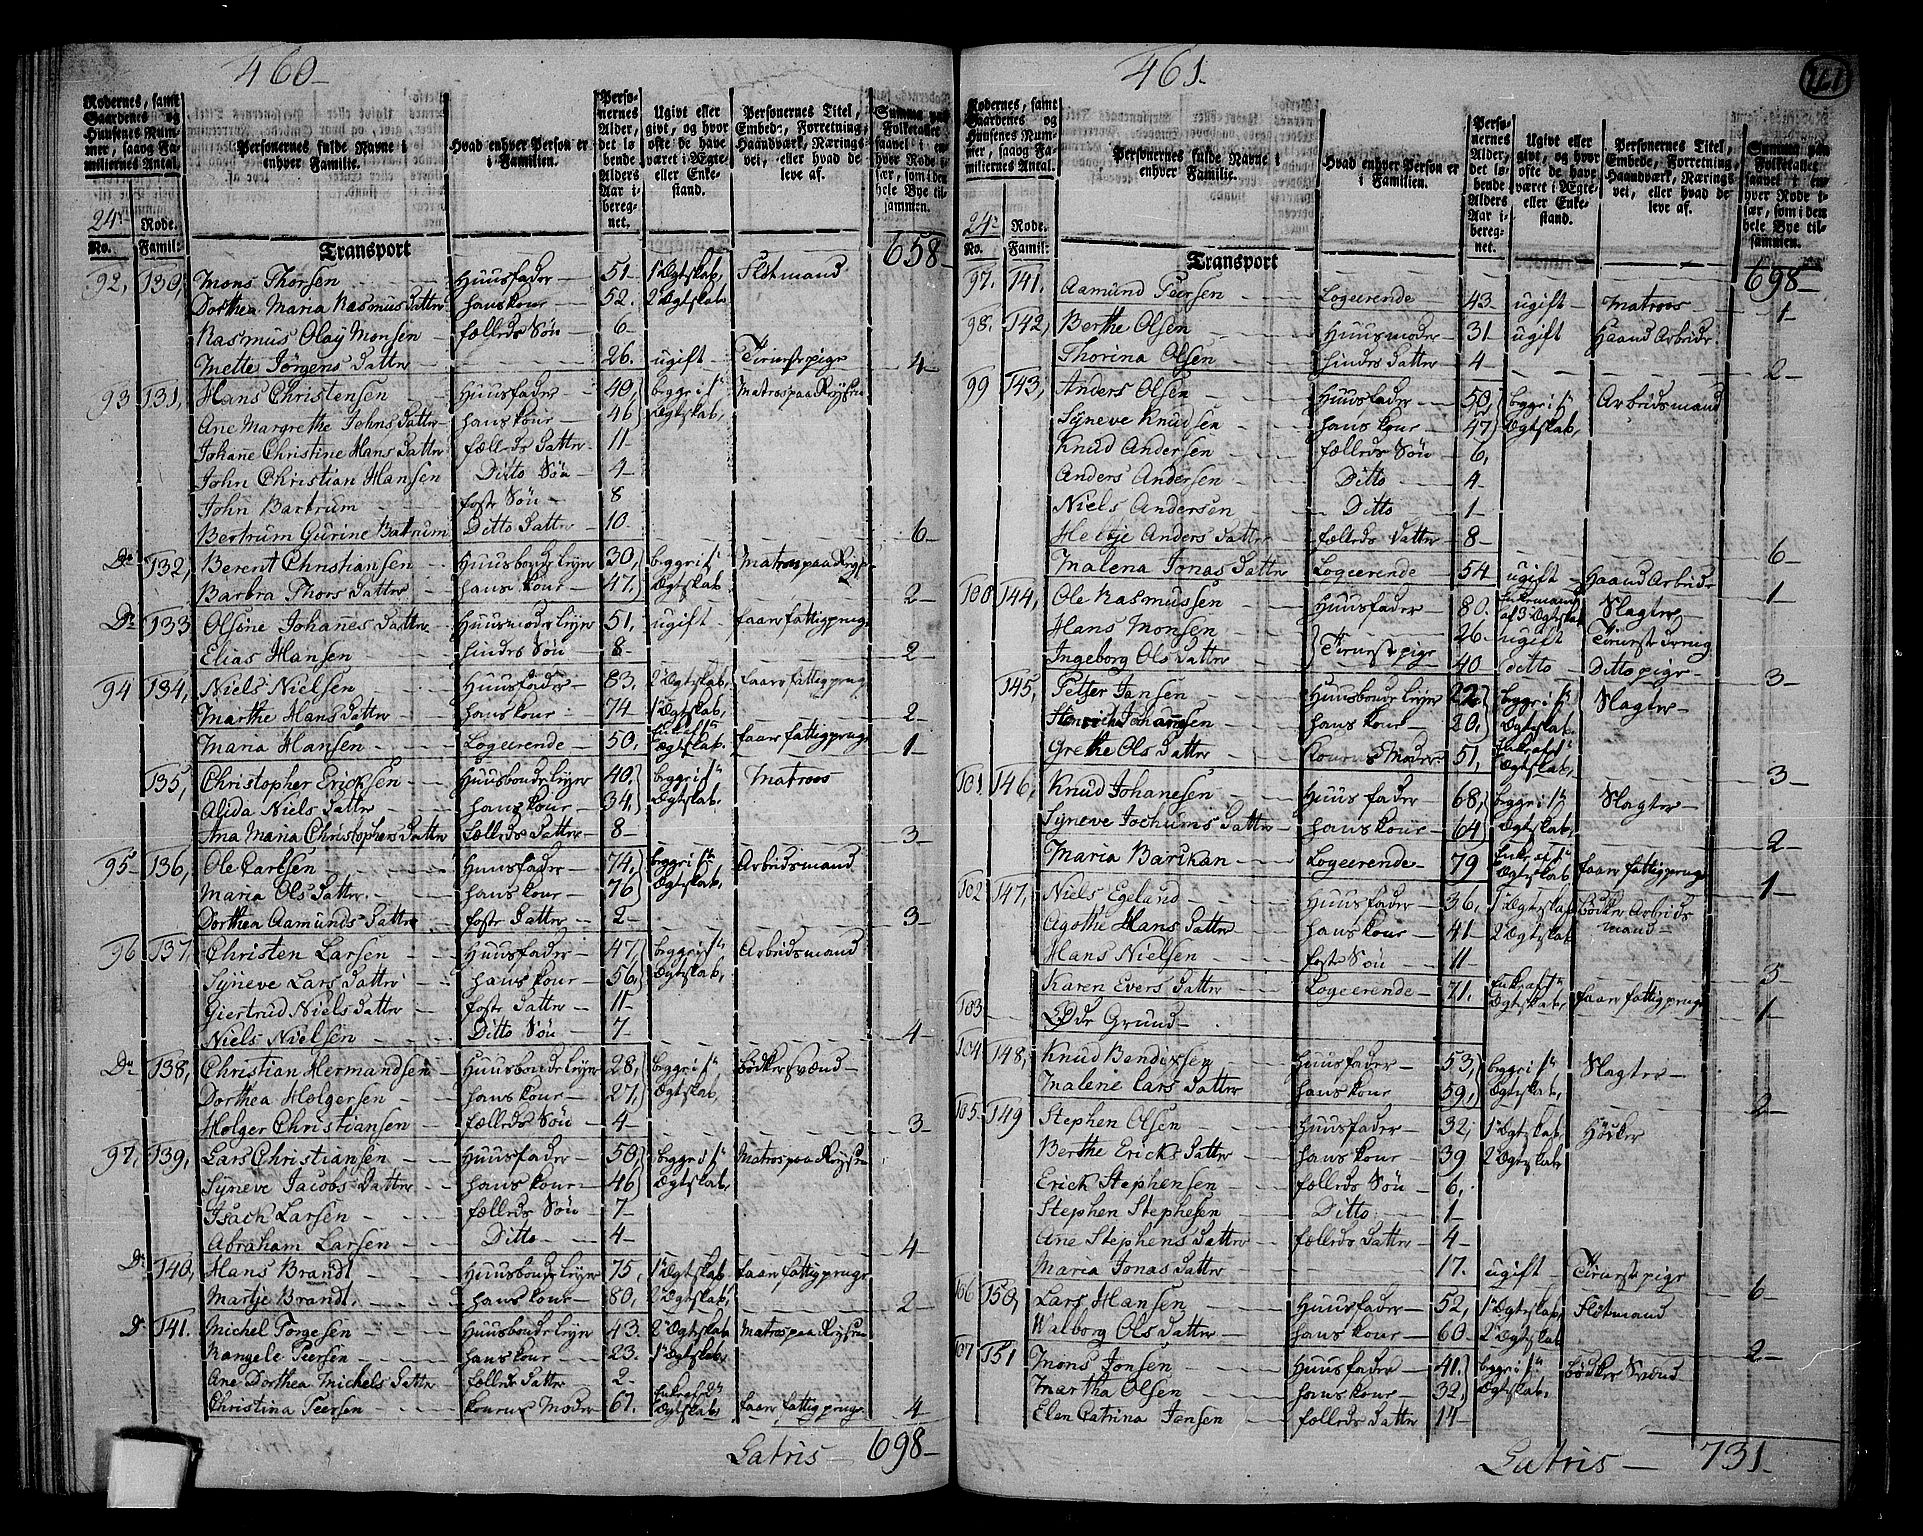 460
Rodernes, samt Gaardenes og Huusenes Nummer, saavog Familiernes Antal.
Personernes fulde Navne i enhver Familie.
Hvad enhver Person er i Familien.
Personernes Alder, det løbende Alders Aar iberegnet.
Ugivt eller givt, og hvor ofte de have været i Ægte- eller Enkestand.
Personernes Titel, Embede, Forretning, Haandværk, Næringsvei, eller hvad de leve af.
Summa paa Folketallet saavel i enhver Rode især, som i den hele Bye tilsammen.
24 Rode.
No. Famil:
Transport 658
92, 130, Mons Thorsen Huusfader 51 1 Ægtskab, Flótmand
Dorthea Maria Rasmus Datter hans kone 52. 2 Ægtskab
Rasmus Olay Monsen fælleds Sön 6
Mette Jörgens Datter 26. ugift Tienstepige 4
93 131, Hans Christensen Huusfader 40, begge i 1 Matros paa Reysen
Ane Margrethe Jehns Datter hans kone 46 Ægtskab,
Johane Christine Hans Datter fælleds Datter 11
John Christian Hansen Ditto Sön 4
John Bartrum foster Sön 8
Bertrum Gurine Batrum Ditto Datter 10. 6
Do 132, Berent Christiansen Huusbonde leyer 30, begge i 1 Matros paa Reyse
Barbra Thors Datter hans kone 47, Ægtskab 2
Do 133 Olsine Johanes Datter Huusmoder leyer 51, ugift faaer fattigpenge
Elias Hansen hindes Sön 8 2
94 134, Niels Nielsen Huusfader 83. 2 Ægtskab, faaer fattigpenge
Marthe Hans Datter hans kone 74 1 Ægtskab, 2
Maria Hansen Logeerende 50, Enke af 1 Ægtskab. faaer fattigpenge 1
135, Christopher Ericksen Huusbonde leyer 40, begge i 1 Matros
Alida Niels Datter hans kone 34, Ægtskab.
Ana Maria Christophers Datter fælleds Datter 8 3
95 136, Ole Carlsen Huusfader 74, begge i 1 Arbeidsmand
Maria Ols Datter hans kone 76 Ægtskab,
Dorthea Aamunds Datter foster Datter 2 3
96 137, Christen Larsen Huusfader 47, begge i 1 Arbeidsmand
Syneve Lars Datter hans kone 56, Ægtskab,
Giertrud Niels Datter foster Datter 11
Niels Nielsen Ditto Sön 7 4
Do 138, Christian Hermandsen Huusbonde leyer 28, begge i 1 Bödker Svend
Dorthea Holgersen hans kone 27, Ægtskab,
Holger Christiansen fælleds Sön 4 3
97, 139, Lars Christiansen Huusfader 50 begge i 1 Matros paa Reysen
Syneve Jacobs Datter hans kone 46 Ægtskab,
Isach Larsen fælleds Sön 7
Abraham Larsen Ditto 4 4
Do 140, Hans Brandt Huusbonde leyer 75, 1 Ægtskab faaer fattigpenge
Martje Brandt, hans kone 80, 2 Ægtskab, 2
Do 141. Michel Torgesen Huusbonde leyer 43. 2 Ægtskab Matros paa Reysen
Mangele Peersen hans kone 23. 1 Ægtskab,
Ane Dorthea Michels Datter fælleds Datter 2
Christina Peersen konens Moder 67. Enke af 2 Ægtskab faaer fattigpenge 4
Latris 698
461.
461
Rodernes, samt Gaardenes og Huusenes Nummer, saavog Familiernes Antal.
Personernes fulde Navne i enhver Familie.
Hvad enhver Person er i Familien.
Personernes Alder, det løbende Alders Aar iberegnet.
Ugivt eller givt, og hvor ofte de have været i Ægte- eller Enkestand.
Personernes Titel, Embede, Forretning, Haandværk, Næringsvei, eller hvad de leve af.
Summa paa Folketallet saavel i enhver Rode især, som i den hele Bye tilsammen.
24 Rode.
No. Famil:
Transport 698
97. 141. Aamund Peersen Logeerende 43. ugift Matroos 1
98. 142, Berthe Olsen Huusmoder 31 ugift Haand Arbeide
Thorina Olsen hindes Datter 4 2
99 143, Anders Olsen Huusfader 50, begge i 1 Arbeidsmand
Syneve Knudsen hans kone 47 Ægtskab,
Knud Andersen fælleds Sön 6,
Anders Andersen Ditto 4
Niels Andersen Ditto 1
Heltje Anders Datter fælleds Datter 8 6
Malena Jonas Datter Logeerende 54 ugift Haand Arbeide 1
100 144, Ole Rasmussen Huusfader 80. Enkemand af 3 Ægtskab Slagter
Hans Monsen 26 ugift Tienstedreng
Ingeborg Ols Datter Tienstepige 40 ditto Ditto pige 3
145, Petter Jansen Huusbonde leyer 22 begge i 1 Slagter
Johansen hans kone 20, Ægtskab,
Grethe Ols Datter Konens Moder 51, Enke af 1 Ægtskab, 3
101 146, Knud Johanesen Huusfader 68, begge i 1 Slagter
Syneve Jochums Datter hans kone 64 Ægtskab, 2
Maria Barikan Logeerende 79 Enke af 1 Ægtskab faaer fattigpenge 1
102 147, Niels Egeland Huusfader 36, 1 Ægtskab Bödker Arbeids
Agothe Hans Datter hans kone 41 2 Ægtskab, mand
Hans Nielsen foster Sön 11 3
Karen Evers Datter Logeerende 71. Enke af 1 Ægtskab, faaer fattigpenge 1
103 Øde Grund
104 148, Knud Bendixsen Huusfader 53, begge i 1 Slagter
Malene Lars Datter hans kone 59, Ægtskab, 2
105 149 Stephen Olsen Huusfader 32, 1 Ægtskab, Höker
Berthe Ericks Datter hans kone 39 2 Ægtskab
Erick Stephensen fælleds Sön 6,
Stephen Stephesen Ditto 1
Ane Stephens Datter fælleds Datter 4
Maria Jonas Datter 17. ugift Tienstepige 6
106 150, Lars Hansen Huusfader 52, 1 Ægtskab Flötmand
Walborg Ols Datter hans kone 60 2 Ægtskab 2
107 151 Mons Jonsen Huusfader 41. begge i 1 Bödker Svend
Martha Olsen hans kone 32, Ægtskab,
Elen Catrina Jensen fælleds Datter 14
Latris 731